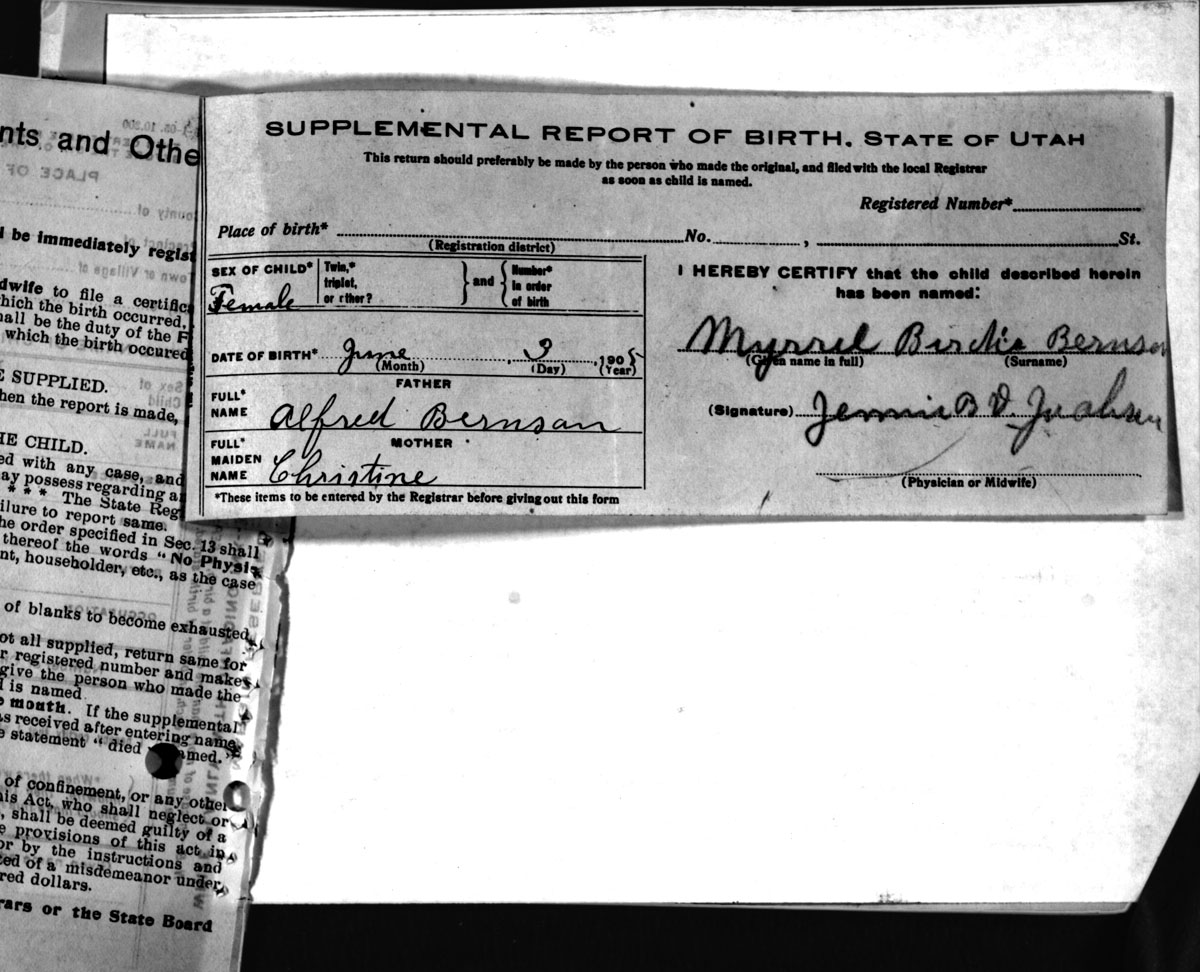 nts and Othe
PLACE OF
county of
l be immediately regist
own or Village of
dwife to file a certific
hich the birth occurred.
hall be the duty of the F
which the birth occured
E SUPPLIED.
hen the report is made,
HE CHILD.
ed with any case, and
ay possess regarding a
* * * The State Reg
ilure to report same.
he order specified in Sec. 13 shall
thereof the words "No Physi
nt, householder, etc., as the case
of blanks to become exhausted
ot all supplied, return same for
r registered number and makes
give the person who made the
l is named
e month. If the supplemental
as received after entering name
e statement "died amed."
of confinement, or any other
his Act, who shall neglect or
, shall be deemed guilty of a
e provisions of this act in
or by the instructions and
ted of a misdemeanor under
red dollars.
rars or the State Board
SUPPLEMENTAL REPORT OF BIRTH, STATE OF UTAH
This return should preferably be made by the person who made the original, and filed with the local Registrar
as soon as child is named.
Registered Number*
Place of birth* No. , St.
(Registration district)
SEX OF CHILD* Twin,* triplet, or other? and Number* in order of birth
Female
DATE OF BIRTH* June , 3 , 1905
(Month) (Day) (Year)
FATHER
FULL* NAME Alfred Bernson
MOTHER
FULL* MAIDEN NAME Christine
*These items to be entered by the Registrar before giving out this form
I HEREBY CERTIFY that the child described herein
has been named:
Myrrel Bernson
(Given name in full) (Surname)
(Signature) Jennie B D.
(Physician or Midwife)